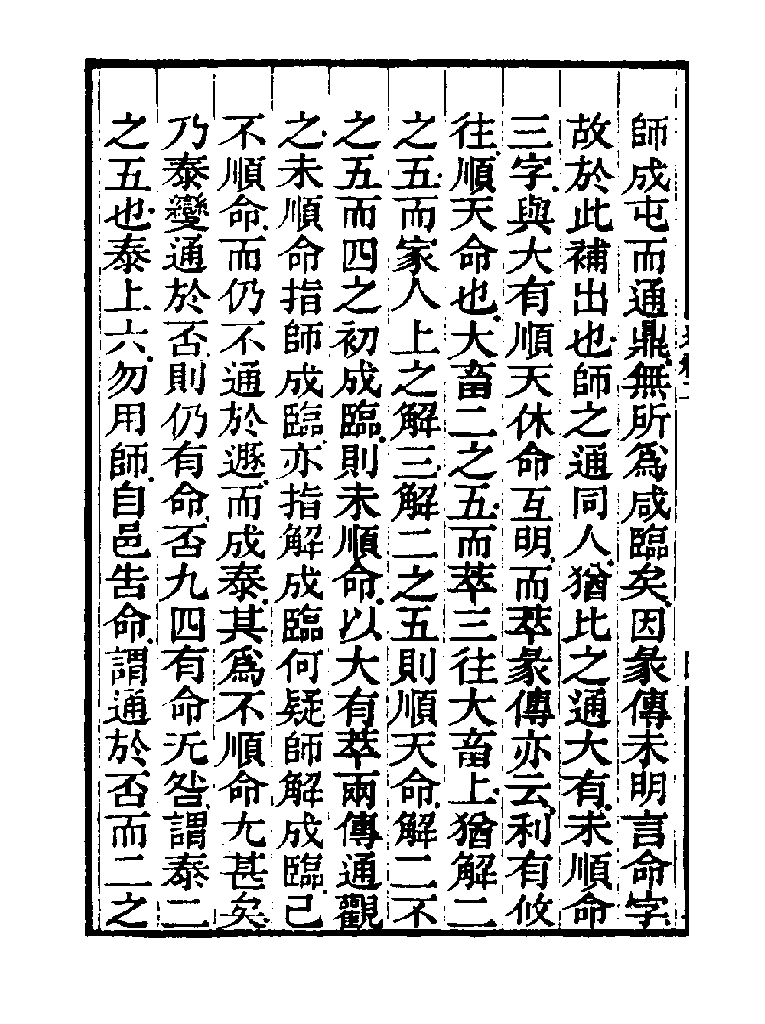 師成屯而通鼎無所爲咸臨矣因彖傳未明言命字
故於此補出也師之通同人猶比之通大有未順命
三字與大有順天休命互明而萃彖傳亦云利有攸
往順天命也大畜二之五而萃三往大畜上猶解二
之五而家人上之解三解二之五則順天命解二不
之五而四之初成臨則未順命以大有萃兩傳通觀
之未順命指師成臨亦指解成臨何疑師解成臨已
不順命而仍不通於遯而成泰其爲不順命尢甚矣
乃泰變通於否則仍有命否九四有命无咎謂泰二
之五也泰上六勿用師自邑告命謂通於否而二之